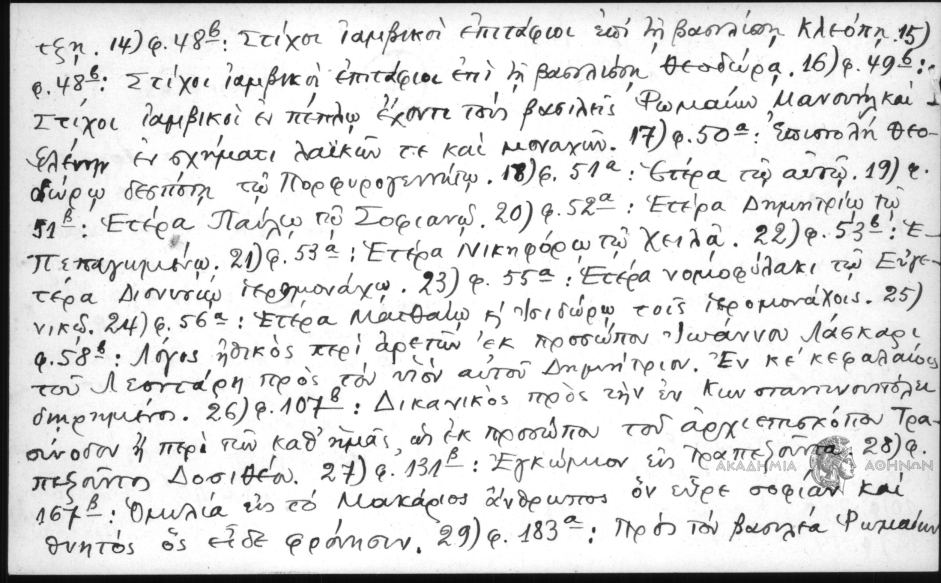 τξη. 14) φ. 48β: Στίχοι ἰαμβικοὶ ἐπιτάφιοι ἐπὶ τῇ βασιλίσσῃ Κλεόπῃ. 15)
φ. 48β: Στίχοι ἰαμβικοὶ ἐπιτάφιοι ἐπὶ τῇ βασιλίσσῃ Θεοδώρᾳ. 16) φ. 49β:
Στίχοι ἰαμβικοὶ ἐν πέπλῳ ἔχοντι τοὺς βασιλεῖς Ῥωμαίων Μανουὴλ καὶ
Ἑλένην ἐν σχήματι λαϊκῶν τε καὶ μοναχῶν. 17) φ. 50α: Ἐπιστολὴ Θεο-
δώρῳ δεσπότῃ τῷ Πορφυρογεννήτῳ. 18) φ. 51α: Ἑτέρα τῷ αὐτῷ. 19) φ.
51β: Ἑτέρα Παύλῳ τῷ Σοφιανῷ. 20) φ. 52α: Ἑτέρα Δημητρίῳ τῷ
Πεπαγωμένῳ. 21) φ. 53α: Ἑτέρα Νικηφόρῳ τῷ Χειλᾶ. 22) φ. 53β: Ἑ-
τέρα Διονυσίῳ ἱερομονάχῳ. 23) φ. 55α: Ἑτέρα νομοφύλακι τῷ Εὐγε-
νικῷ. 24) φ. 56α: Ἑτέρα Ματθαίῳ κ Ἰσιδώρῳ τοῖς ἱερομονάχοις. 25)
φ. 58β: Λόγος ἠθικὸς περὶ ἀρετῶν ἐκ προσώπου Ἰωάννου Λάσκαρι
τοῦ Λεοντάρη πρὸς τὸν υἱὸν αὐτοῦ Δημήτριον. Ἐν κε΄ κεφαλαίοις
διῃρημένος. 26) φ. 107β: Δικανικὸς πρὸς τὴν ἐν Κωνσταντινουπόλει
σύνοδον ἢ περὶ τῶν καθ' ἡμᾶς ὡς ἐκ προσώπου τοῦ ἀρχιεπισκόπου Τρα-
πεζοῦντος Δοσιθέου. 27) φ. 131β: Ἐγκώμιον εἰς Τραπεζοῦντα. 28) φ.
167β: Ὁμιλία εἰς τὸ Μακάριος ἄνθρωπος ὃν εὗρε σοφίαν καὶ
θνητὸς ὃς εἶδε φρόνησιν. 29) φ. 183α: Πρὸς τὸν βασιλέα Ῥωμαίων
ΑΚΑΔΗΜΙΑ ΑΘΗΝΩΝ